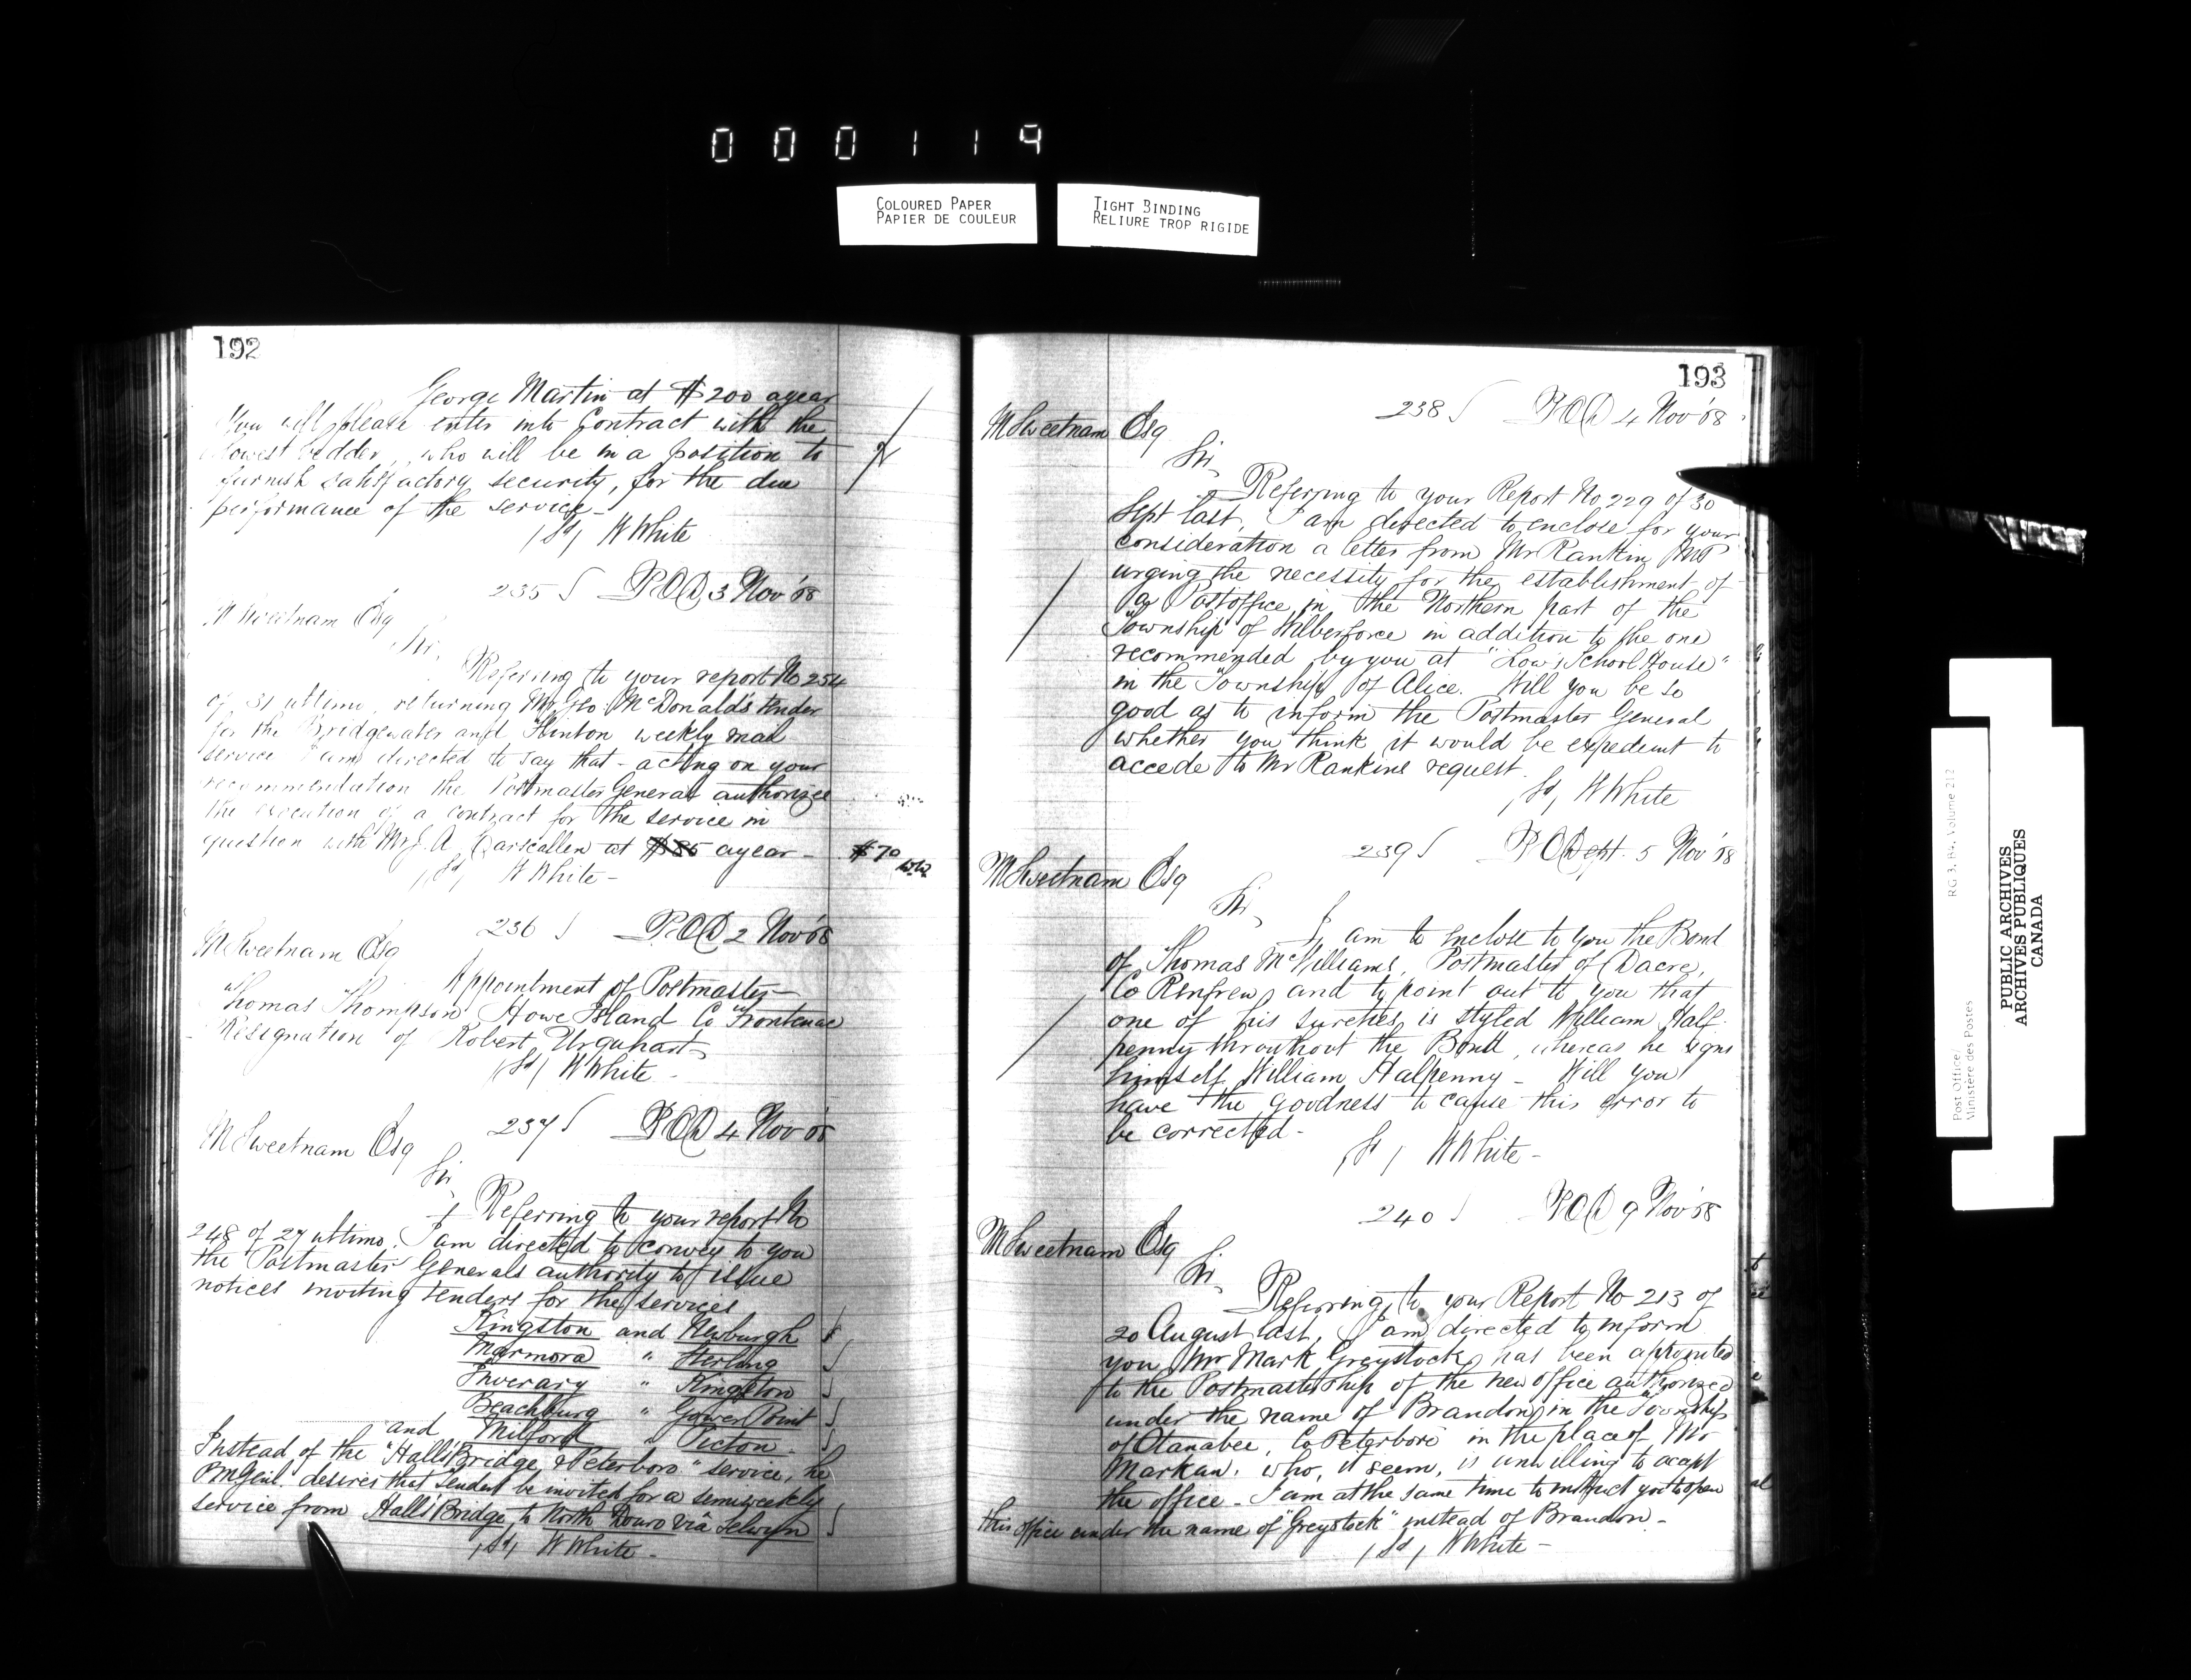 000119
COLOURED PAPER
PAPIER DE COULEUR
TIGHT BINDING
RELIURE TROP RIGIDE
192
George Martin at $200 a year
You will please enter into Contract with the
lowest bidder, who will be in a position to
furnish satisfactory security, for the due
performance of the service –
(Sd) W White
235 POD 3 Nov '68
M Sweetnam Esq
Sir,
Referring to your report No 254
of 31 ultimo, returning Mr Geo McDonald's tender
for the Bridgewater and Flinton weekly mail
service I am directed to say that – acting on your
recommendation the Postmaster General authorize
the execution of a contract for the service in
question with Mr J. A. Carscallen at $85 a year – $70 WW
(Sd) W White –
236 POD 2 Nov '68
M Sweetnam Esq
Appointment of Postmaster –
Thomas Thompson Howe Island Co Frontenac
Resignation of Robert Urquhart –
(Sd) W White –
237 POD 4 Nov '68
M Sweetnam Esq
Sir,
Referring to your report No
248 of 27 ultimo. I am directed to convey to you
the Postmaster Generals authority to issue
notices inviting tenders for the services
Kingston and Newburgh
Marmora " Sterling
Inverary " Kingston
Beachburg " Gower Point
and Milford " Picton –
Instead of the "Halls Bridge & Peterboro" service, he
PMGenl. desires that tenders be invited for a semiweekly
service from Halls Bridge to North Douro viâ Selwyn
(Sd) W White –
193
238 POD 4 Nov '68
M Sweetnam Esq
Sir,
Referring to your Report No 229 of 30
Sept last, I am directed to enclose for your
consideration a letter from Mr Rankin MP
urging the necessity for the establishment of
a Postoffice in the Northern part of the
Township of Wilberforce in addition to the one
recommended by you at "Low's School House"
in the Township of Alice. Will you be so
good as to inform the Postmaster General
whether you think it would be expedient to
accede to Mr Rankins request.
(Sd) W White
239 PODept. 5 Nov '68
M Sweetnam Esq
Sir,
I am to enclose to you the Bond
of Thomas McWilliams, Postmaster of Dacre,
Co Renfrew, and to point out to you that
one of his sureties is styled William Half-
penny throughout the Bond, whereas he signs
himself William Halpenny – Will you
have the goodness to cause this error to
be corrected –
(Sd) W White –
240 POD 9 Nov '68
M Sweetnam Esq
Sir,
Referring to your Report No 213 of
20 August last, I am directed to inform
you Mr Mark Greystock has been appointed
to the Postmastership of the new office authorized
under the name of Brandon in the Township
of Otanabee, Co Peterboro' in the place of Mr
Markan, who, it seem, is unwilling to accept
the office – I am at the same time to instruct you to open
this office under the name of "Greystock" instead of Brandon –
(Sd) W White –
RG 3, B4, Volume 212
Post Office/
Ministère des Postes
PUBLIC ARCHIVES
ARCHIVES PUBLIQUES
CANADA